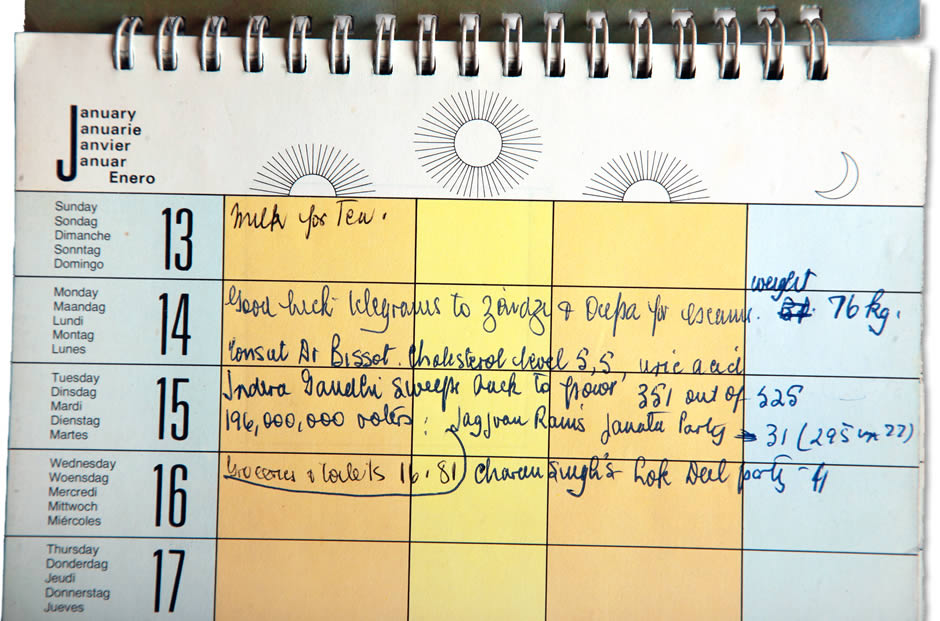 January
Januarie
Janvier
Januar
Enero
Sunday
Sondag
Dimanche
Sonntag
Domingo
13
Milk for Tea.
Monday
Maandag
Lundi
Montag
Lunes
14
weight
Good luck telegrams to Zindzi & Deepa for exams. 76 kg.
Consult Dr Bissot. Cholesterol level 5,5, uric acid
Tuesday
Dinsdag
Mardi
Dienstag
Martes
15
Indira Gandhi sweeps back to power 351 out of 525
196,000,000 votes: Jagjvan Ram's Janata Party 31 (295 in 77)
Wednesday
Woensdag
Mercredi
Mittwoch
Miércoles
16
Groceries & toilets 16.81 Charan Singh's Lok Deal party - 41
Thursday
Donderdag
Jeudi
Donnerstag
Jueves
17